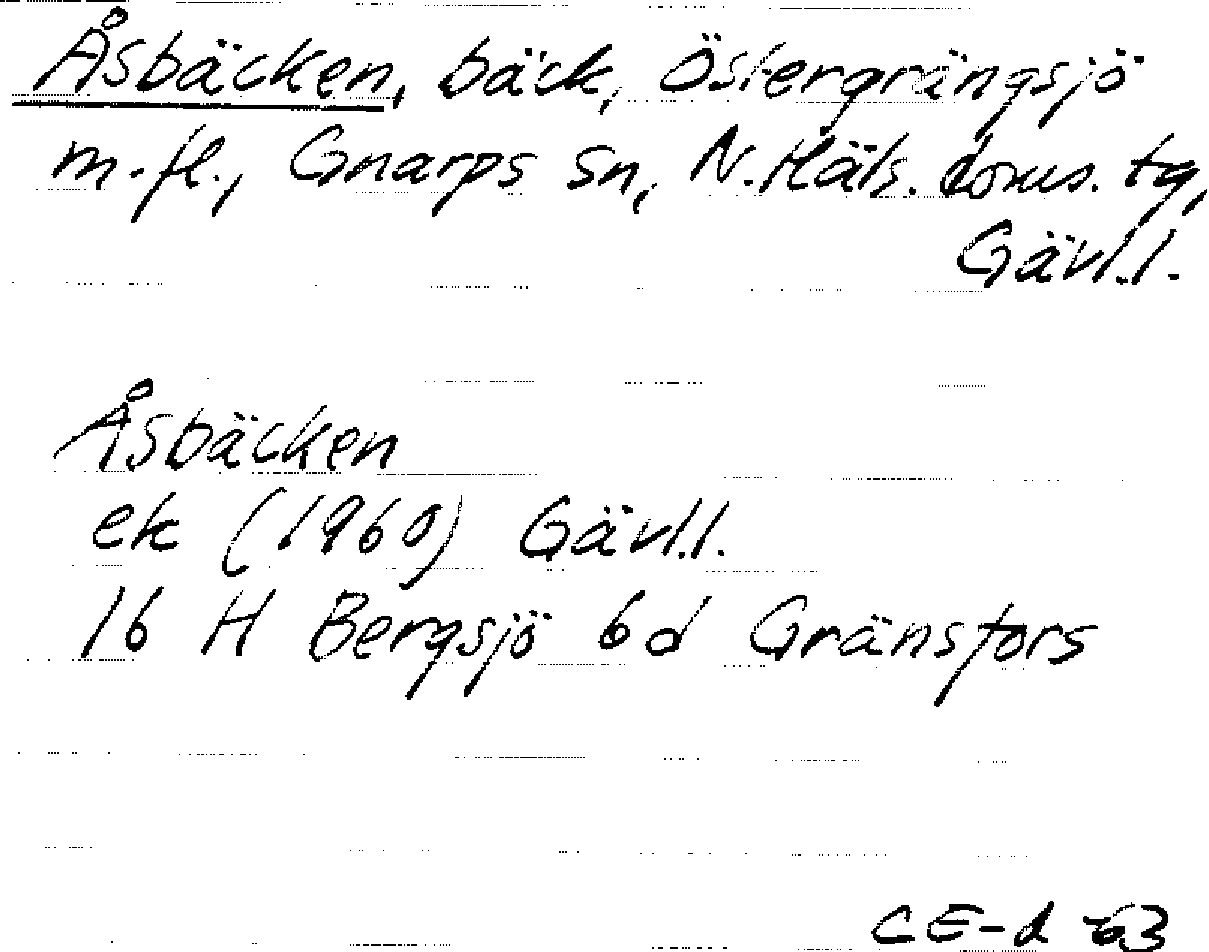 Åsbäcken, bäck, Östergrängsjö
m.fl., Gnarps sn, N. Häls. doms. tg,
Gävl.l.
Åsbäcken
ek (1960) Gävl.l.
16 H Bergsjö 6d Gränsfors
CE-d -63